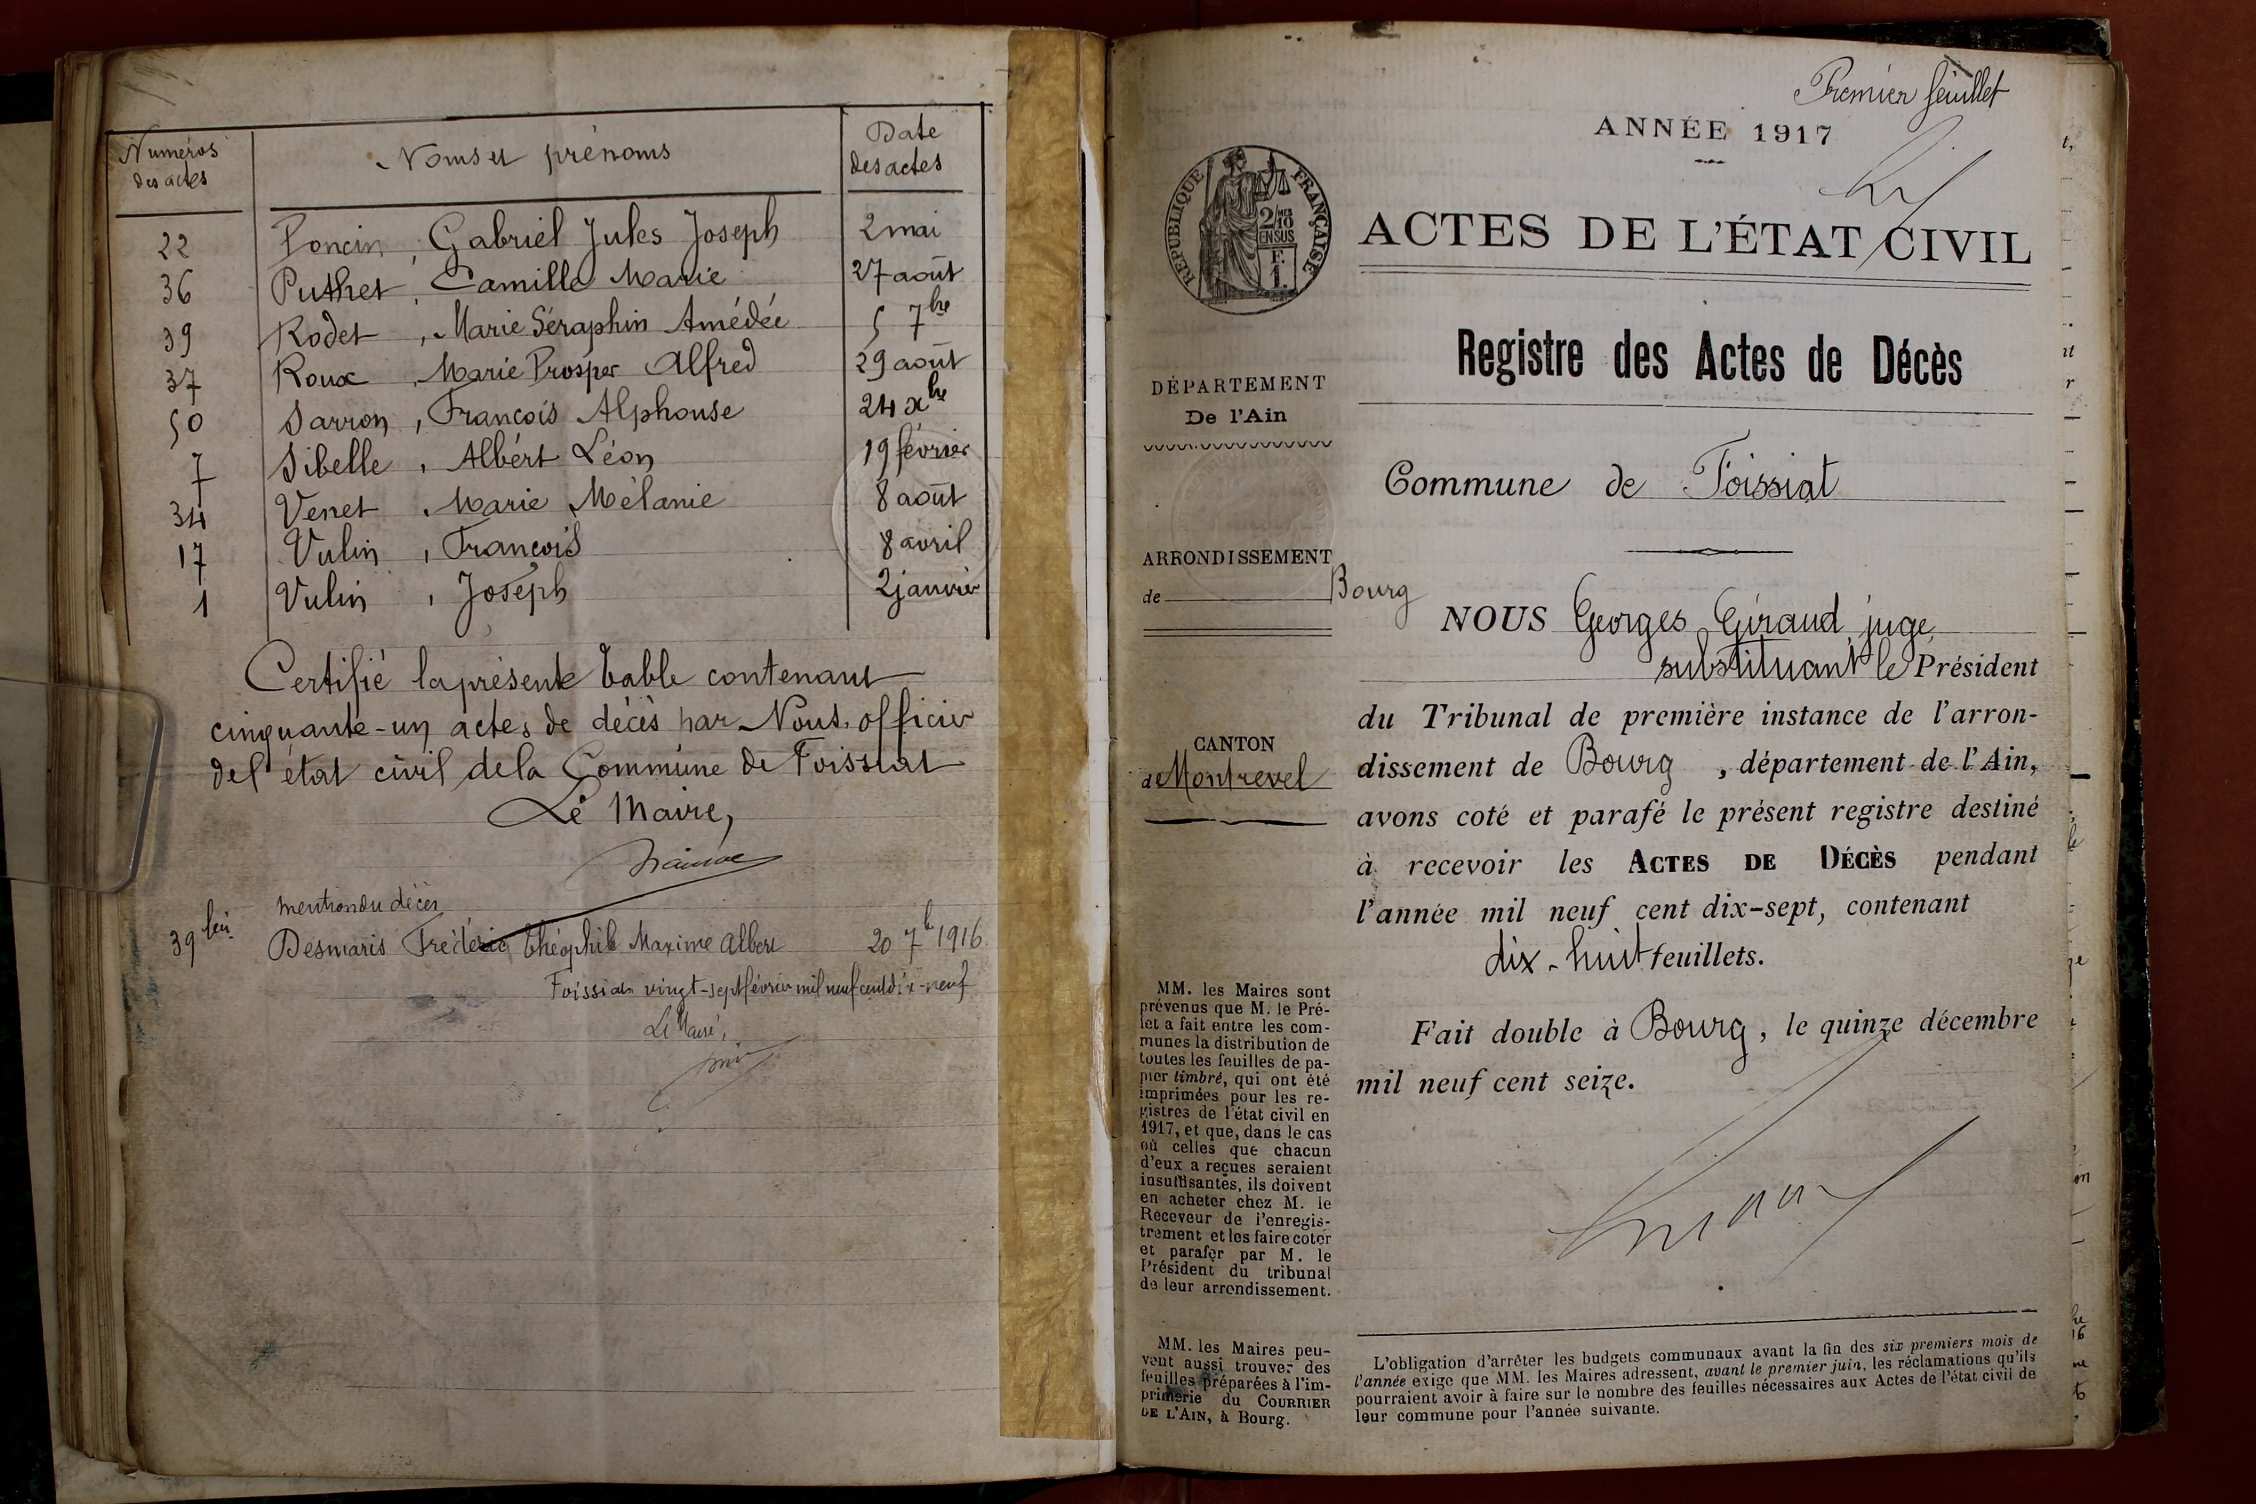 Numéros des actes | Noms et prénoms | Date des actes
22 | Poncin, Gabriel Jules Joseph | 2 mai
36 | Puthet, Camille Marie | 27 août
39 | Rodet, Marie Séraphin Amédée | 5 7bre
37 | Roux, Marie Prosper Alfred | 29 août
50 | Sarron, François Alphonse | 24 xbre
7 | Sibelle, Albért Léon | 19 février
34 | Venet, Marie Mélanie | 8 août
17 | Vulin, François | 8 avril
1 | Vulin, Joseph | 2 janvier
Certifié la présente table contenant
cinquante-un actes de décès par Nous, officier
de l'état civil de la Commune de Foissiat
Le Maire,
mention du décès
39 bis Desmaris Frédéric Théophile Maxime Albert 20 7b 1916
Foissiat vingt-sept février mil neuf cent dix-neuf
Le Maire,
Premier feuillet
ANNÉE 1917
RÉPUBLIQUE FRANÇAISE
2/10MES
EN SUS
F.
1.
ACTES DE L'ÉTAT CIVIL
Registre des Actes de Décès
DÉPARTEMENT
De l'Ain
Commune de Foissiat
ARRONDISSEMENT
de Bourg
NOUS Georges Giraud, juge
substituant le Président
du Tribunal de première instance de l'arron-
dissement de Bourg, département de l'Ain,
avons coté et parafé le présent registre destiné
à recevoir les ACTES DE DÉCÈS pendant
l'année mil neuf cent dix-sept, contenant
dix-huit feuillets.
Fait double à Bourg, le quinze décembre
mil neuf cent seize.
CANTON
de Montrevel
MM. les Maires sont
prévenus que M. le Pré-
fet a fait entre les com-
munes la distribution de
toutes les feuilles de pa-
pier timbré, qui ont été
imprimées pour les re-
gistres de l'état civil en
1917, et que, dans le cas
où celles que chacun
d'eux a reçues seraient
insuffisantes, ils doivent
en acheter chez M. le
Receveur de l'enregis-
trement et les faire coter
et parafer par M. le
Président du tribunal
de leur arrondissement.
MM. les Maires peu-
vent aussi trouver des
feuilles préparées à l'im-
primerie du COURRIER
DE L'AIN, à Bourg.
L'obligation d'arrêter les budgets communaux avant la fin des six premiers mois de
l'année exige que MM. les Maires adressent, avant le premier juin, les réclamations qu'ils
pourraient avoir à faire sur le nombre des feuilles nécessaires aux Actes de l'état civil de
leur commune pour l'année suivante.